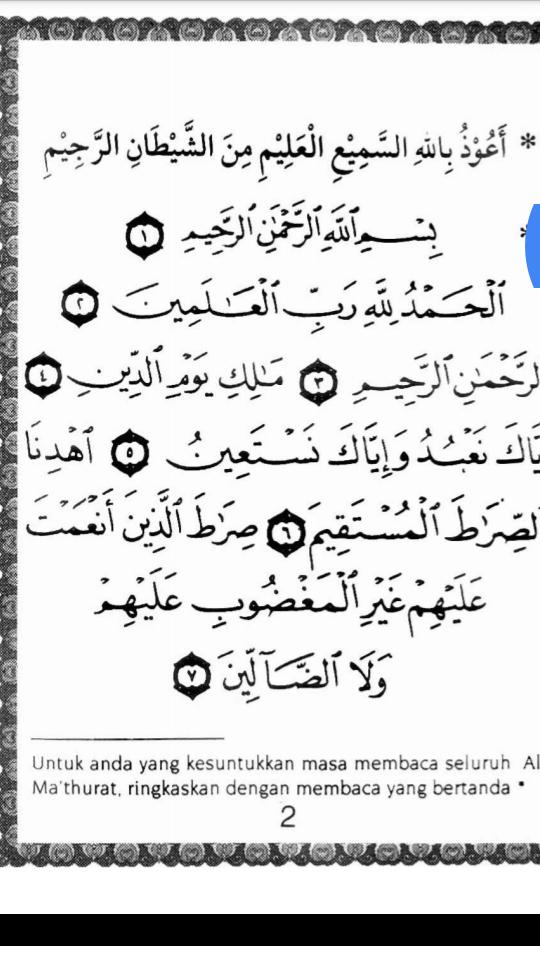 * أَعُوْذُ بِاللهِ السَّمِيْعِ الْعَلِيْمِ مِنَ الشَّيْطَانِ الرَّجِيْمِ
* بِسْمِ ٱللَّهِ ٱلرَّحْمَٰنِ ٱلرَّحِيمِ ١
ٱلْحَمْدُ لِلَّهِ رَبِّ ٱلْعَٰلَمِينَ ٢
لرَّحْمَٰنِ ٱلرَّحِيمِ ٣ مَٰلِكِ يَوْمِ ٱلدِّينِ ٤
يَّاكَ نَعْبُدُ وَإِيَّاكَ نَسْتَعِينُ ٥ ٱهْدِنَا
ٱلصِّرَٰطَ ٱلْمُسْتَقِيمَ ٦ صِرَٰطَ ٱلَّذِينَ أَنْعَمْتَ
عَلَيْهِمْ غَيْرِ ٱلْمَغْضُوبِ عَلَيْهِمْ
وَلَا ٱلضَّآلِّينَ ٧
Untuk anda yang kesuntukkan masa membaca seluruh Al
Ma'thurat, ringkaskan dengan membaca yang bertanda *
2